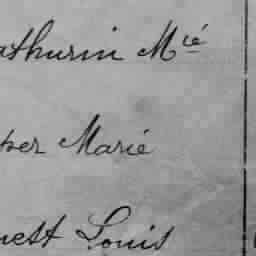 athurin Mié
ber Marié
nest Louis